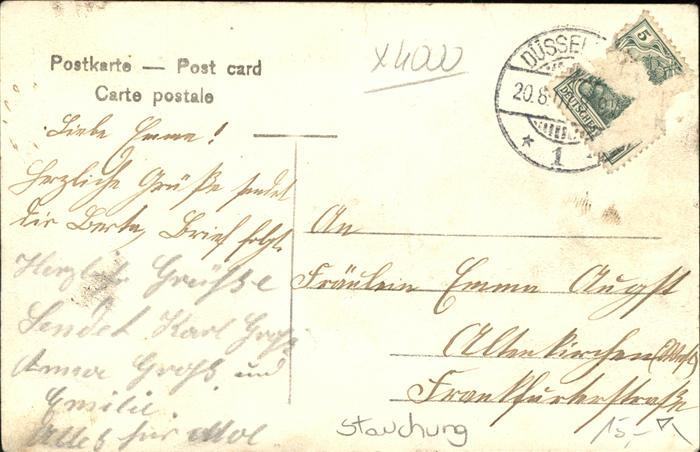 Postkarte — Post card
Carte postale
x4000
DÜSSEL
20.8.
* 1
5
DEUTSCHES
Liebe Emma!
Herzliche Grüße sendet
dir Berta, Brief folgt.
Herzliche Grüße
Sendet Karl Groß
Anna Groß und
Emilie
Alles für
An
Fräulein Emma Augst
Altenkirchen
Frankfurterstraße
Stauchung
15,-